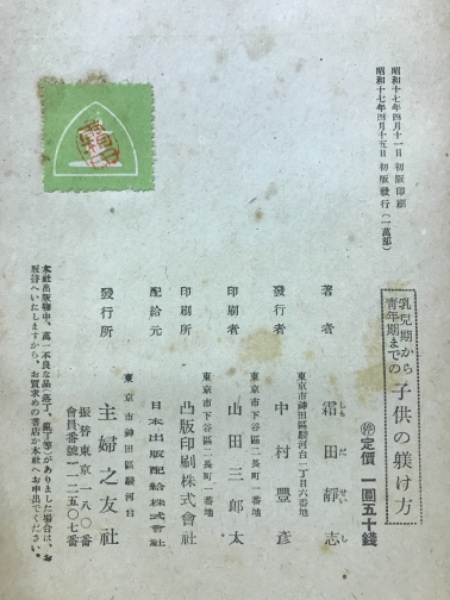 昭和十七年四月十一日 初版印刷
昭和十七年四月十五日 初版發行(一萬部)
乳兒期から
青年期までの
子供の躾け方
㊕定價 一圓五十錢
著者 霜田靜志
しもだせいし
東京市神田區駿河台一丁目六番地
發行者 中村豐彥
東京市下谷區二長町一番地
印刷者 山田三郎太
東京市下谷區二長町一番地
印刷所 凸版印刷株式會社
配給元 日本出版配給株式會社
東京市神田區駿河台
發行所 主婦之友社
振替東京一八〇番
會員番號一一二五〇七番
本社出版物中、萬一不良な品(落丁、亂丁等)がありました場合は、お
取替へいたしますから、お買求めの書店か本社へお申出でください。
霜田